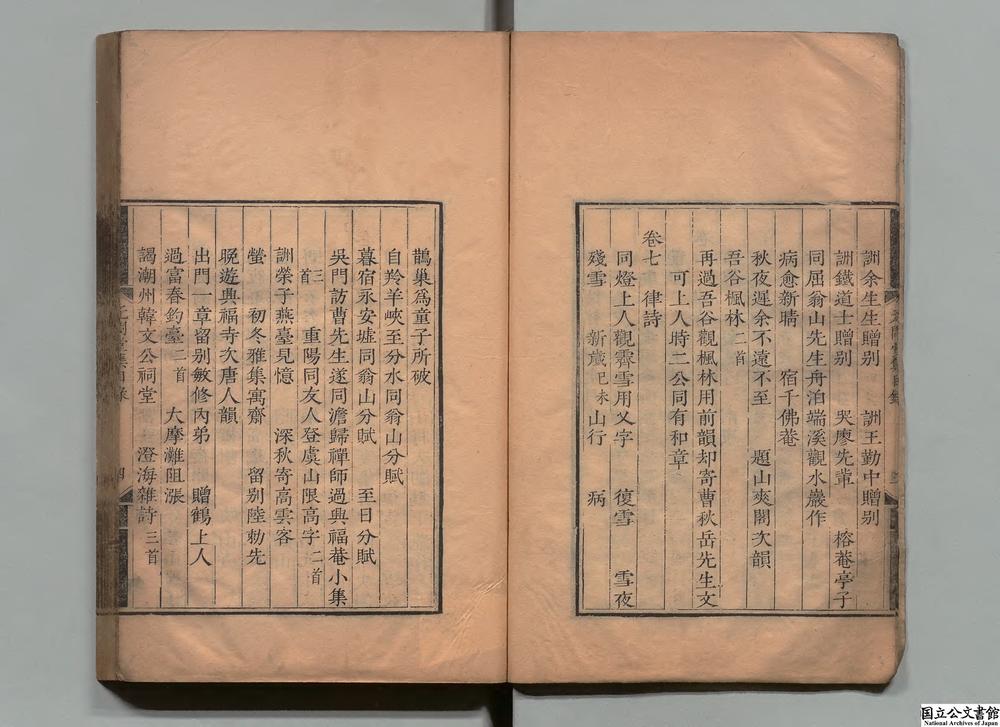 詶余生生贈別　詶王勤中贈別
詶鐵道士贈別　哭廖先輩　榕菴亭子
同屈翁山先生舟泊端溪觀水巖作
病愈新晴　宿千佛菴
秋夜遲余不遠不至　題山爽閣次韻
吾谷楓林二首
再過吾谷觀楓林用前韻却寄曹秋岳先生文
可上人時二公同有和章
卷七　律詩
同燈上人觀霽雪用叉字　復雪　雪夜
殘雪　新歲己未　山行　病
鵲巢爲童子所破
自羚羊峽至分水同翁山分賦
暮宿永安墟同翁山分賦　至日分賦
吳門訪曹先生遂同澹歸禪師過興福菴小集
三首　重陽同友人登虞山限高字二首
詶榮子燕臺見憶　深秋寄高雲客
螢　初冬雅集寓齋　留別陸勑先
晚遊興福寺次唐人韻
出門一章留別敏修內弟　贈鶴上人
過富春釣臺二首　大摩灘阻漲
謁潮州韓文公祠堂　澄海雜詩三首
国立公文書館
National Archives of Japan